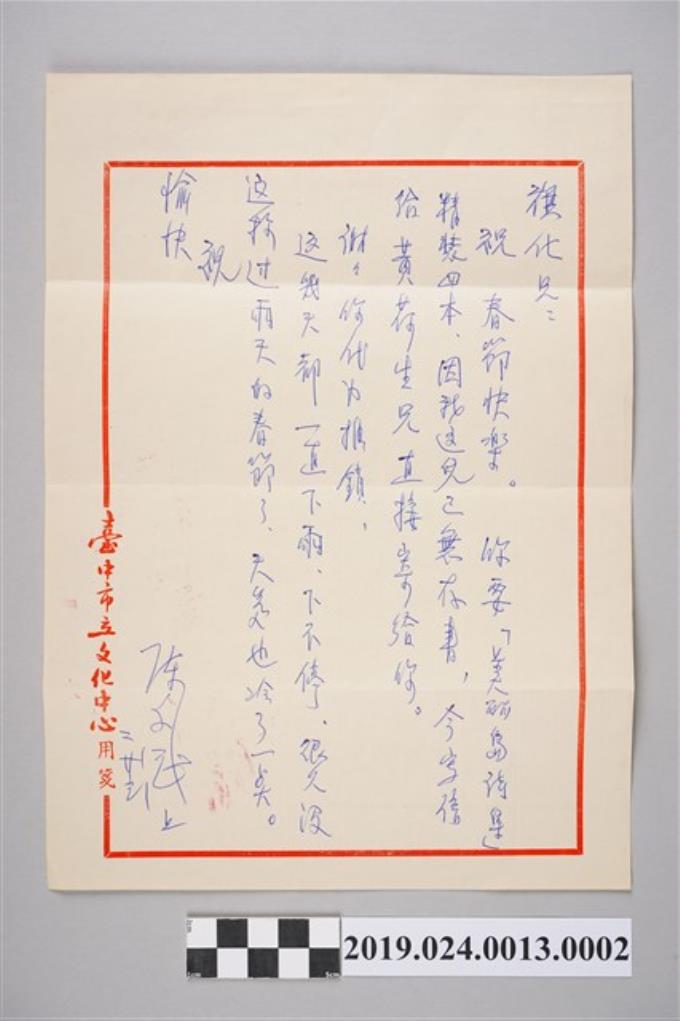 旗化兄：
祝 春節快樂。 你要「美麗島詩集」
精裝四本、因我这兒已無存書，今寫信
给黃荷生兄直接寄給你。
謝々你代为推銷，
这幾天都一直下雨、下不停、很久沒
这種过雨天的春節了、天氣也冷了一点。
祝
愉快
陳 上
二
臺中市立文化中心用箋
2019.024.0013.0002